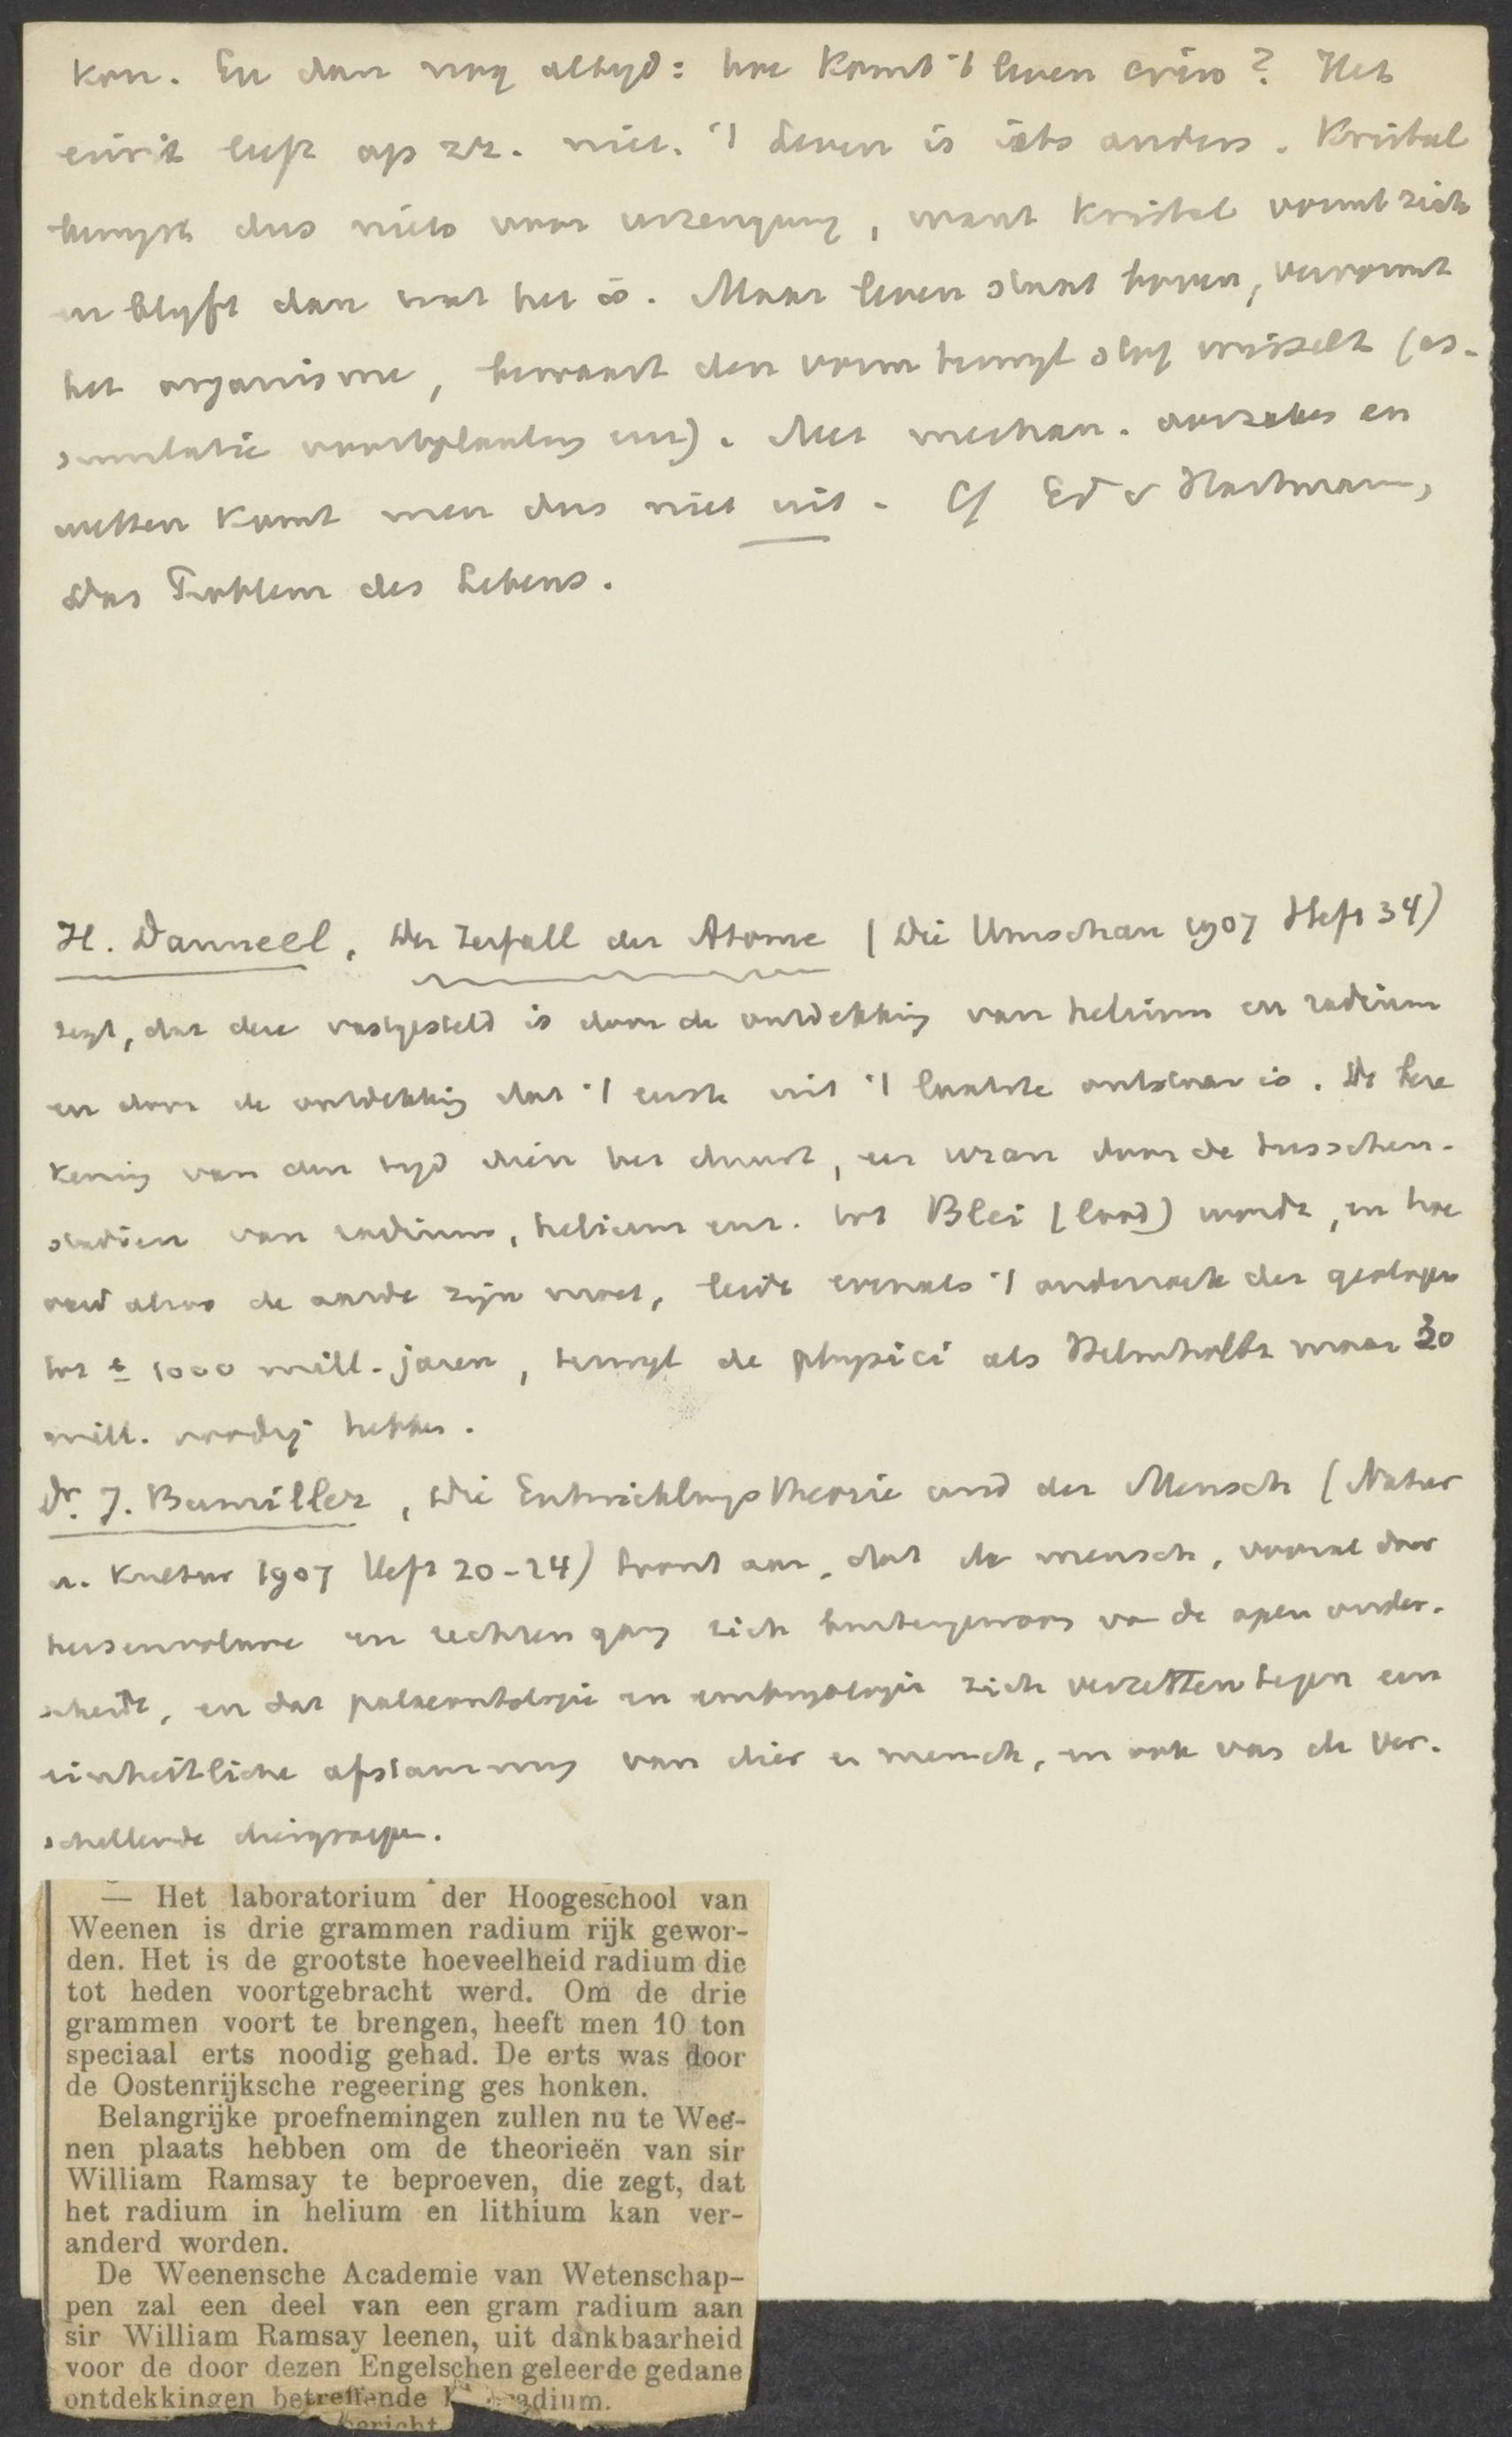 kon. En dan nog altijd: hoe komt 't leven erin? Het
eiwit leeft op zz. niet. 't Leven is iets anders. Kristal
bewijst dus niets voor urzeugung, want kristal vormt zich
en blijft dan wat het is. Maar leven staat boven, vervormt
het organisme, bewaart den vorm terwijl stof wisselt (as-
simulatie voortplanting enz). Met mechan. oorzakes en
wetten komt men dus niet uit. Cf Ed v Hartmann,
Das Problem des Lebens.
H. Danneel, Der Zerfall der Atome (Die Umschau 1907 Heft 34)
zegt, dat deze vastgesteld is door de ontdekking van helium en radium
en door de ontdekking dat 't eerste uit 't laatste ontstaan is. De bere
kening van den tijd dien het duurt, eer uran door de tusschen-
stadien van radium, helium enz. tot Blei (lood) wordt, en hoe
oud alzoo de aarde zijn moet, leidt evenals 't onderzoek der geologen
tot ± 1000 mill. jaren, terwijl de physici als Helmholtz maar 30
mill. noodig hebben.
Dr. J. Bumiller, Die Entwicklungstheorie und der Mensch (Natur
u. Kultur 1907 Heft 20-24) toont aan, dat de mensch, vooral door
hersenvolume en rechten gang zich buitengewoon van de apen onder-
scheidt, en dat palaeontologie en embryologie zich verzetten tegen een
einheitliche afstamming van dier en mensch, en ook van de ver-
schillende diergroepen.
— Het laboratorium der Hoogeschool van
Weenen is drie grammen radium rijk gewor-
den. Het is de grootste hoeveelheid radium die
tot heden voortgebracht werd. Om de drie
grammen voort te brengen, heeft men 10 ton
speciaal erts noodig gehad. De erts was door
de Oostenrijksche regeering ges honken.
Belangrijke proefnemingen zullen nu te Wee-
nen plaats hebben om de theorieën van sir
William Ramsay te beproeven, die zegt, dat
het radium in helium en lithium kan ver-
anderd worden.
De Weenensche Academie van Wetenschap-
pen zal een deel van een gram radium aan
sir William Ramsay leenen, uit dankbaarheid
voor de door dezen Engelschen geleerde gedane
ontdekkingen betreffende radium.
bericht